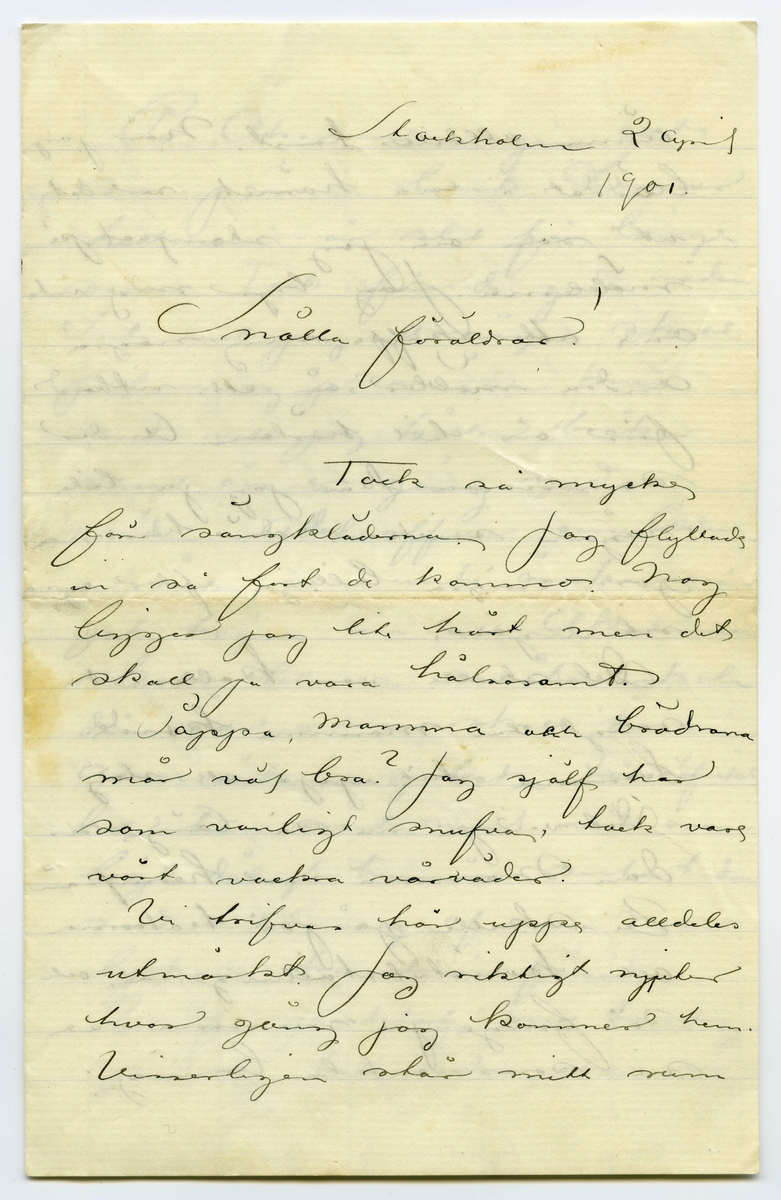 Stockholm 2 april
1901.
Snälla föräldrar!
Tack så mycket
för sängkläderna. Jag flyttade
in så fort de kommo. Nog
ligger jag lite hårdt men det
skall ju vara hälsosamt.
Pappa, Mamma och bröderna
mår väl bra? Jag själf har
som vanligt snufva, tack vare
vårt vackra vårväder.
Vi trifvas här uppe alldeles
utmärkt. Jag riktigt njuter
hvar gång jag kommer hem.
Visserligen står mitt rum